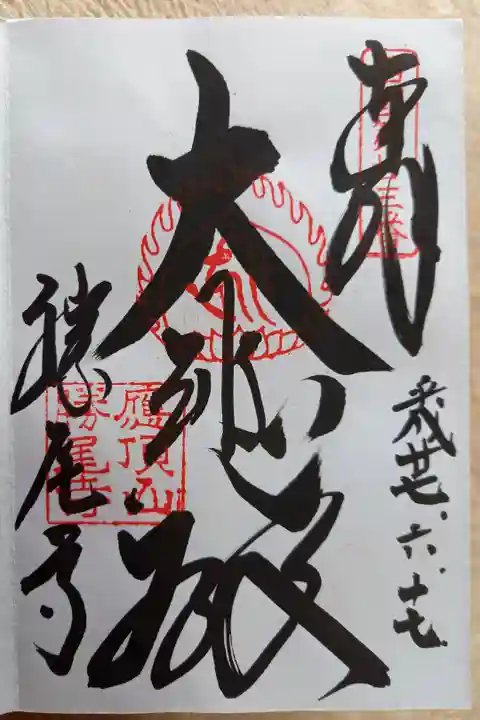 奉拝
平成廿七、六、十七
大悲殿
勝尾寺
應頂山
勝尾寺